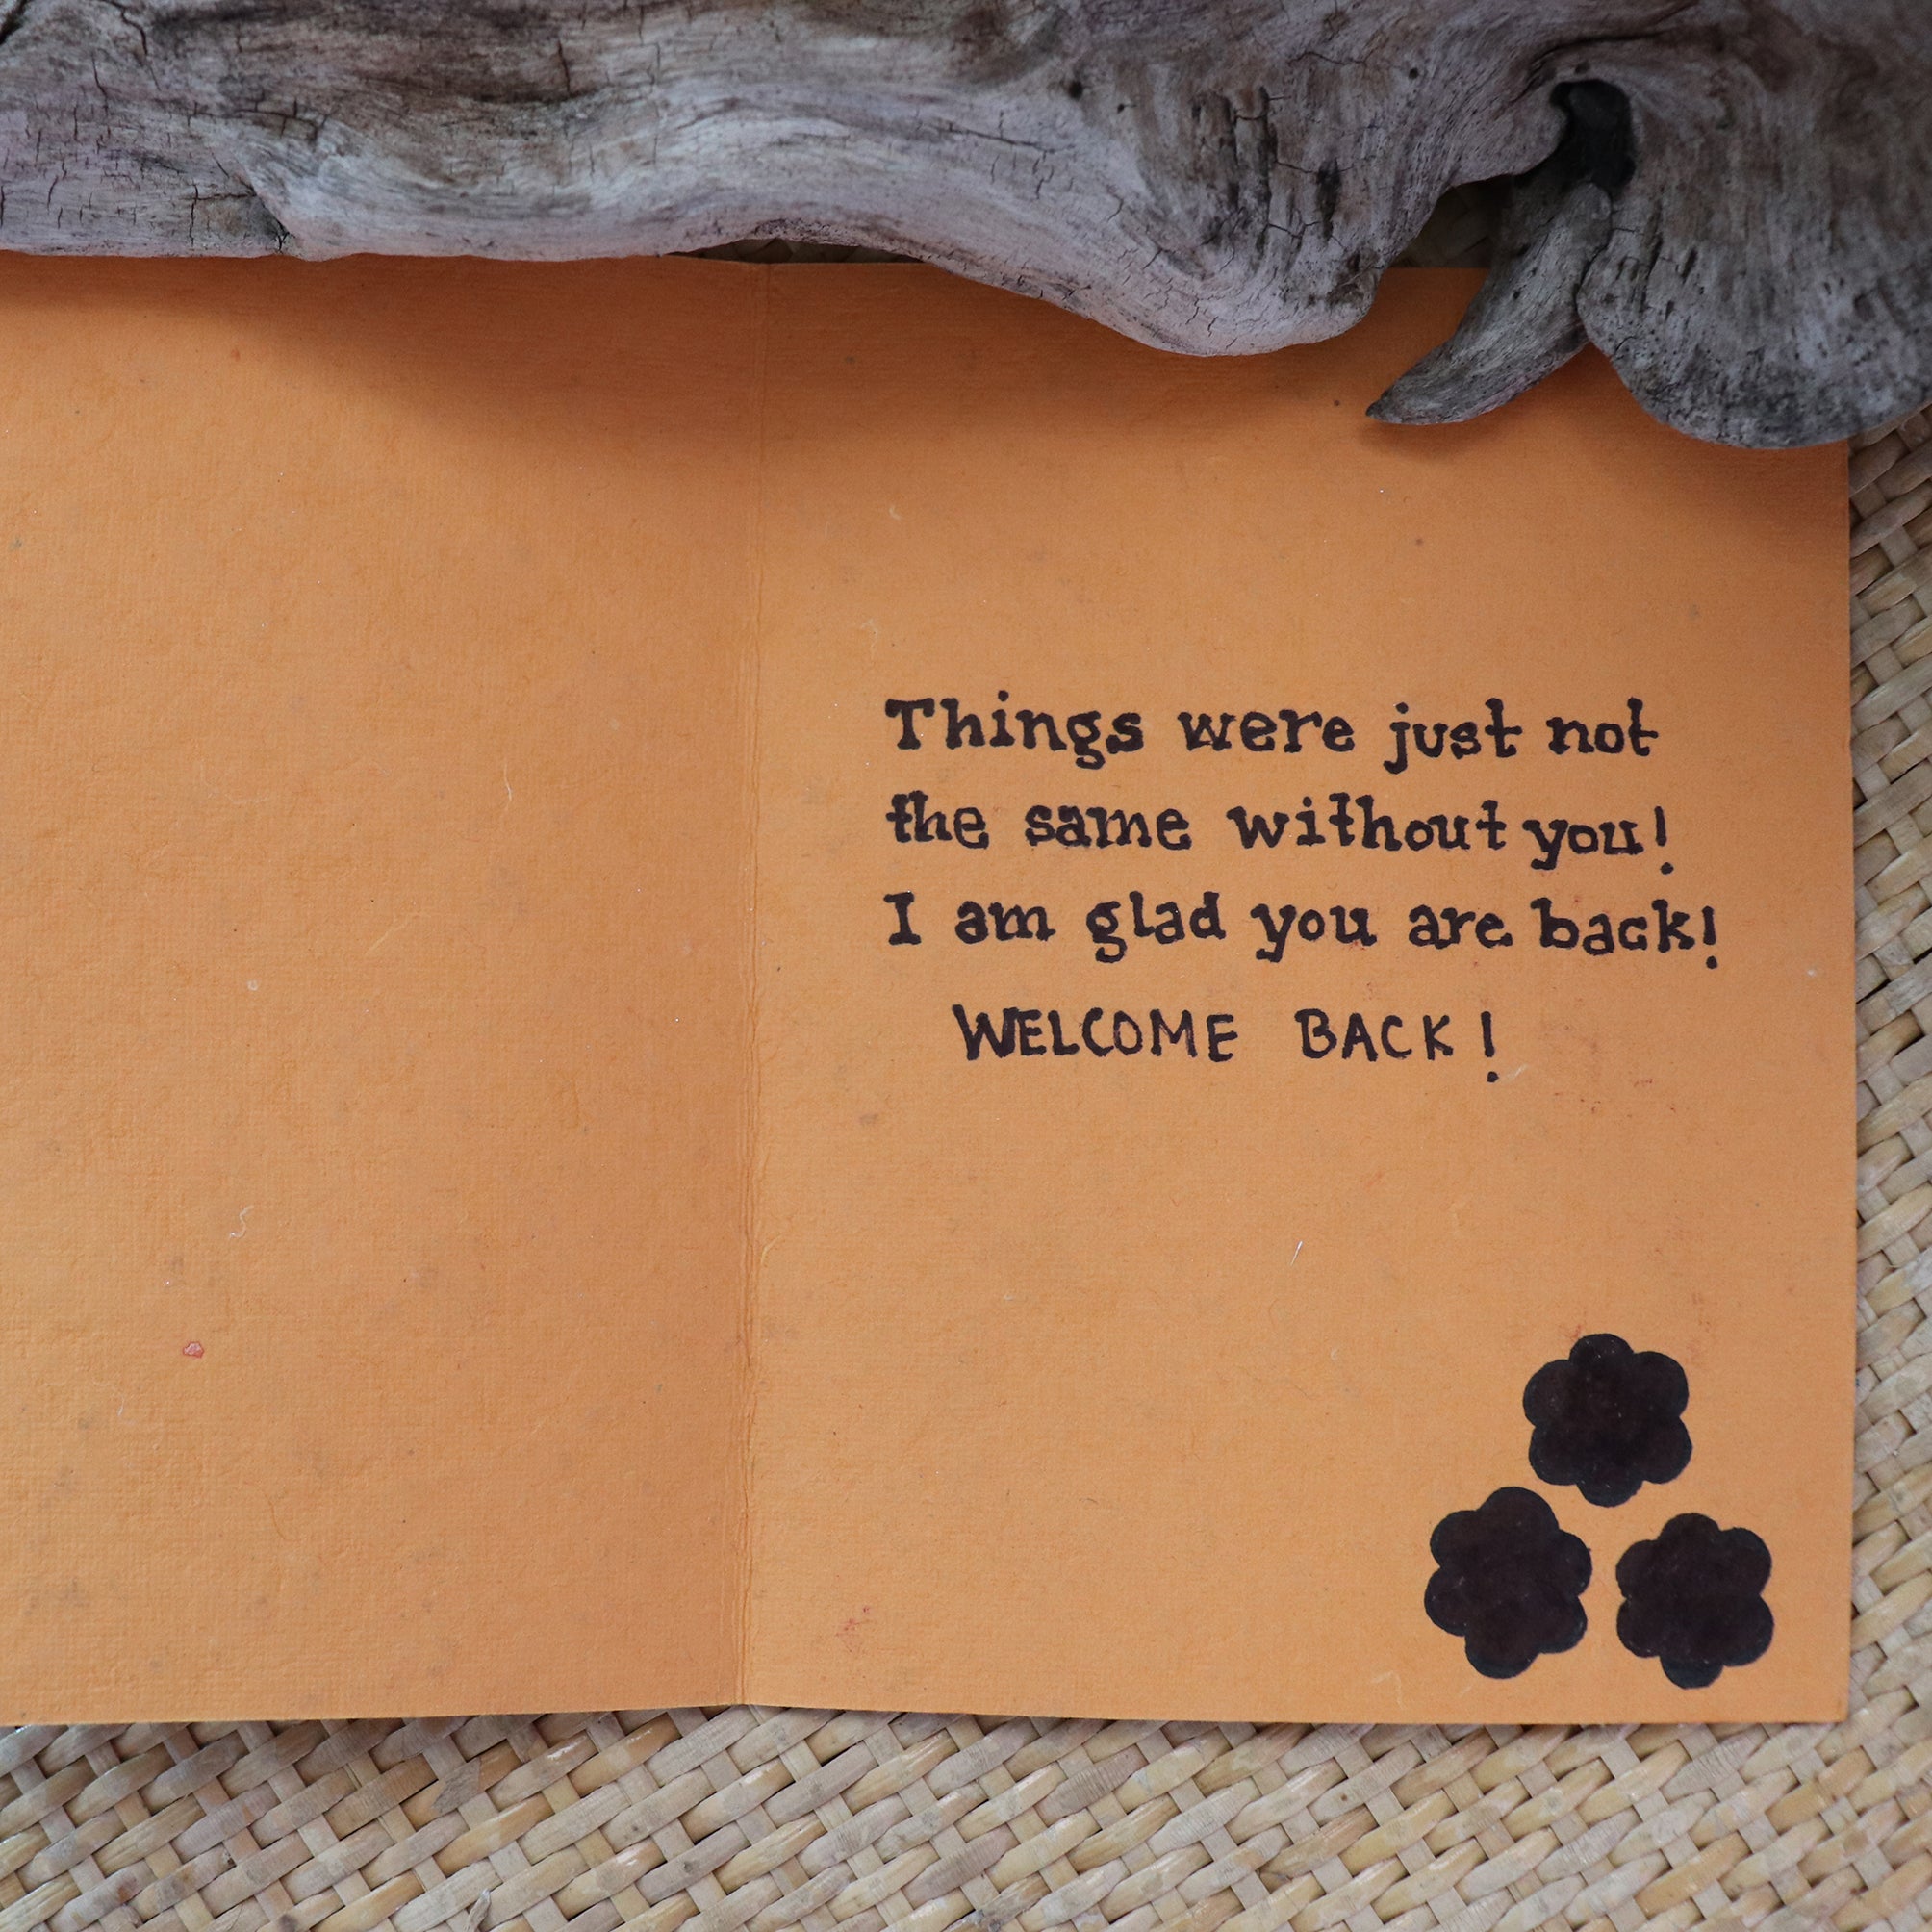 Things were just not
the same without you!
I am glad you are back!
WELCOME BACK!